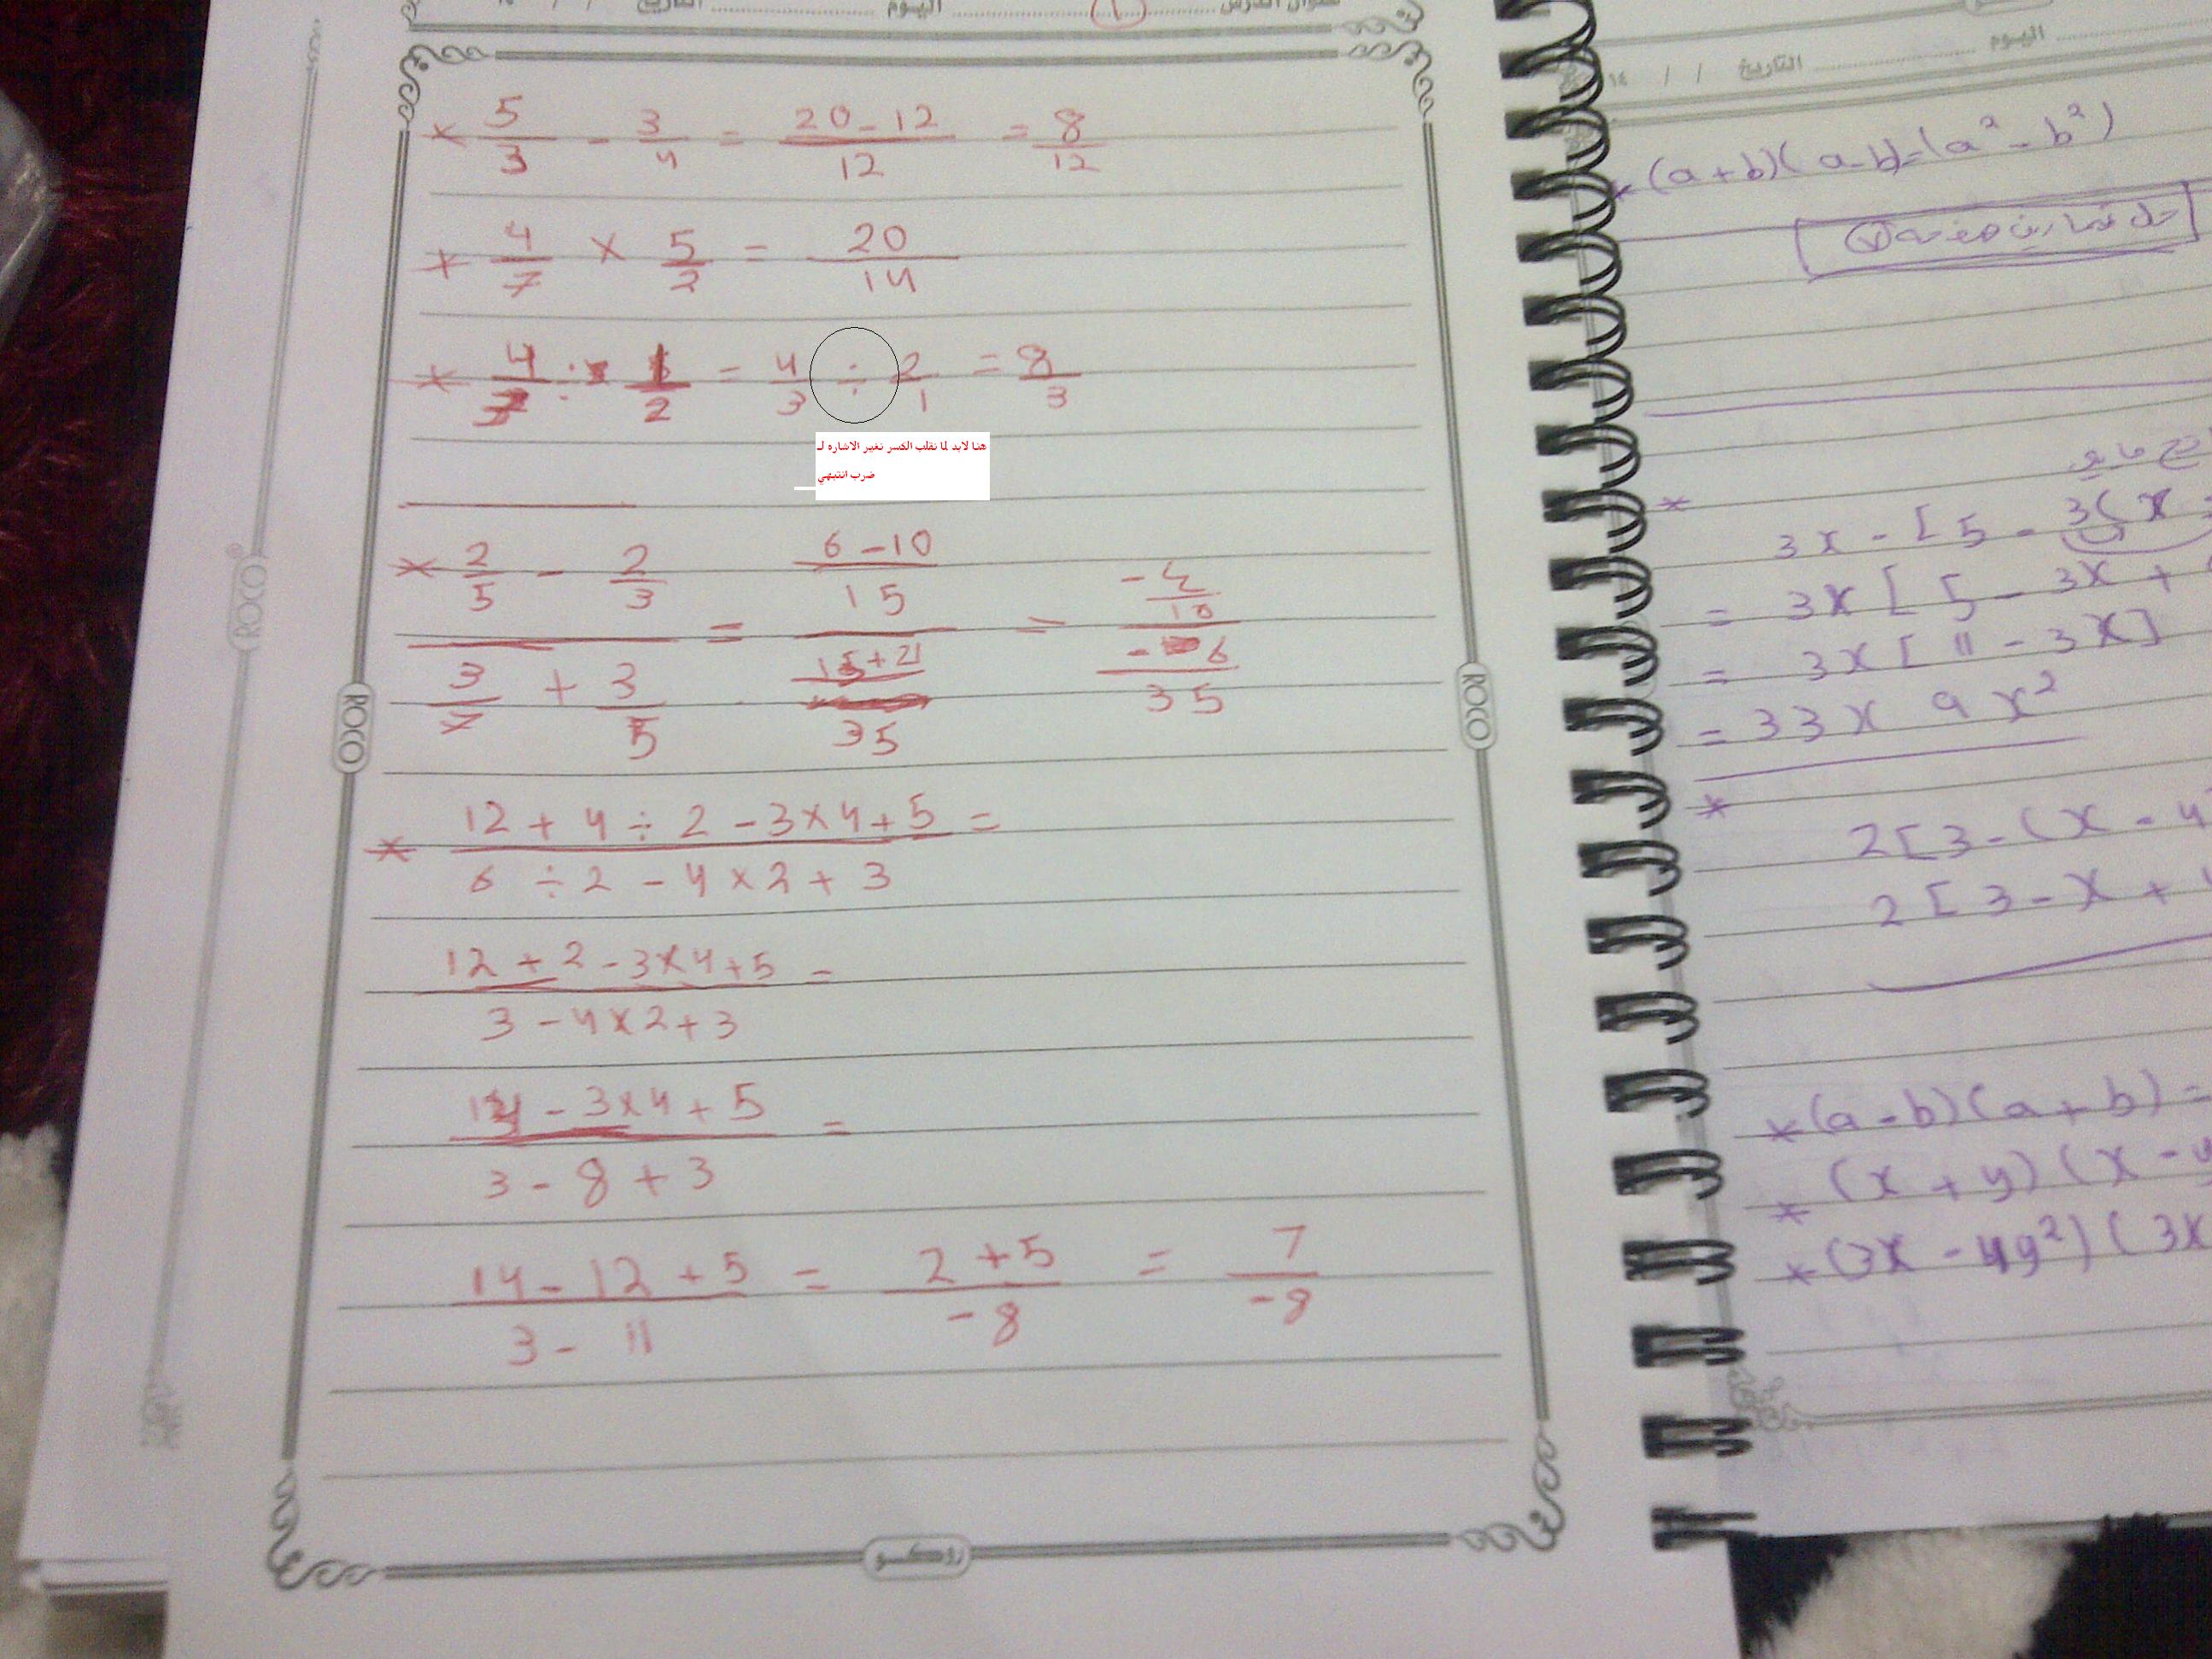 عنوان الدرس ........ (١) ........ اليوم ........ التاريخ / / ١٤
* 5/3 - 3/4 = 20-12/12 = 8/12
* 4/7 × 5/2 = 20/14
* 4/3 ÷ 1/2 = 4/3 ÷ 2/1 = 8/3
هنا لابد لما نقلب الكسر نغير الاشاره لـ
ضرب انتبهي
* 2/5 - 2/3 / 3/7 + 3/5 = 6-10/15 / 15+21/35 =
* 12 + 4 ÷ 2 - 3×4+5 / 6 ÷ 2 - 4×2+3 =
12 + 2 - 3×4+5 / 3 - 4×2+3 =
14 - 3×4+5 / 3 - 8 + 3 =
14 - 12 + 5 / 3 - 11 = 2+5 / -8 = 7/-8
ROCO
ROCO
ROCO
روكو
اليوم ........ التاريخ / / ١٤
* (a+b)(a-b)=(a² - b²)
حل تمارين صفحة
*
3x - [5 - 3(x
= 3x [5 - 3x +
= 3x [11 - 3x]
= 33x 9x²
*
2[3-(x - 4
2[3 - x +
*(a-b)(a+b) =
* (x + y)(x - y
*(3x - 4y²)(3x